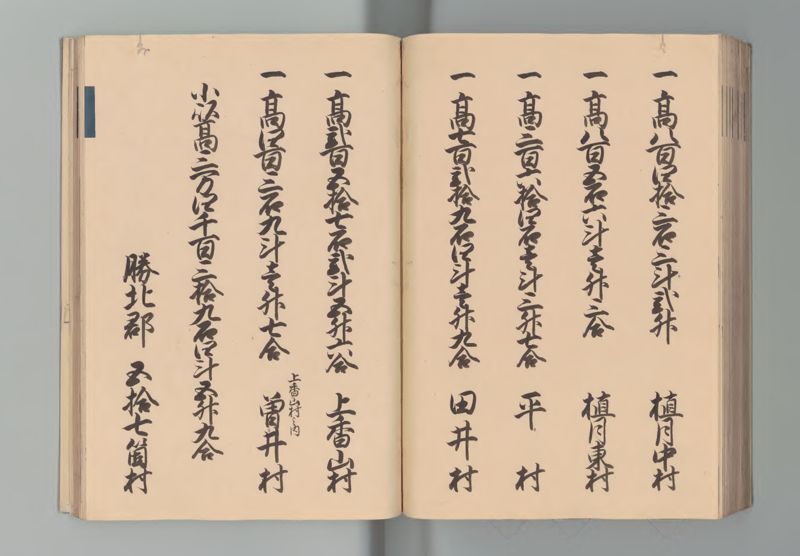 一高八百四拾三石三斗弐升 植月中村
一高八百五石六斗壱升三合 植月東村
一高三百六拾四石壱斗三升七合 平村
一高七百弐拾九石四斗壱升九合 田井村
一高弐百五拾七石弐斗五升六合 上香山村
上香山村之内
一高四百三石九斗壱升七合 曽井村
小以高三万四千百三拾九石四斗五升九合
勝北郡 五拾七箇村